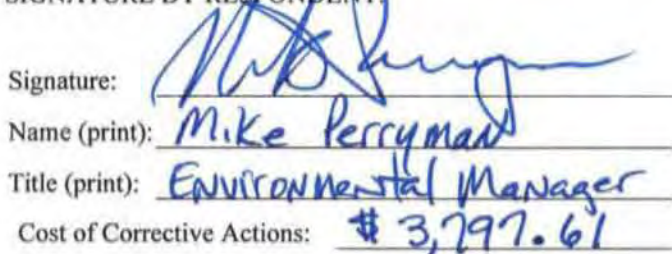 SIGNATURE BY RESPONDENT:
Signature:
Name (print): Mike Perryman
Title (print): Environmental Manager
Cost of Corrective Actions: $ 3,797.61